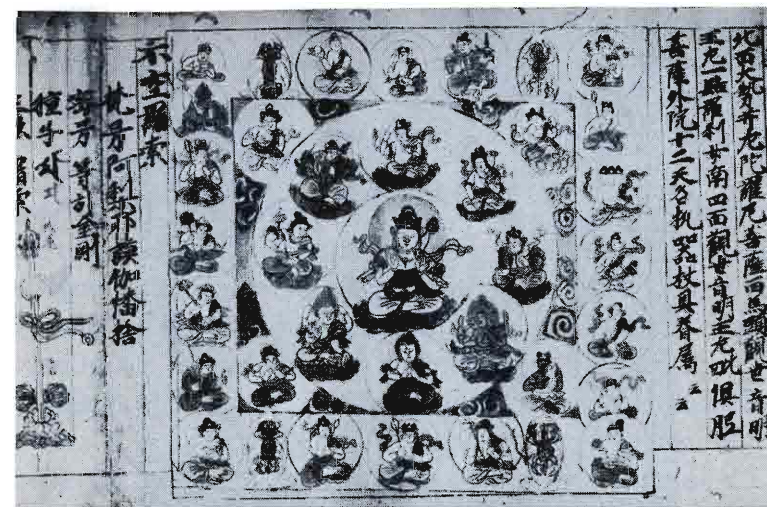 北面大勢至左陀羅尼菩薩西馬頭觀世音明
王左一髻羅刹女南四面觀世音明王左毗俱胝
菩薩外院十二天各執器杖具眷属 云云
不空羂索
梵号阿利耶謨伽皤捨
密号 等引金剛
種子
三形 羂索